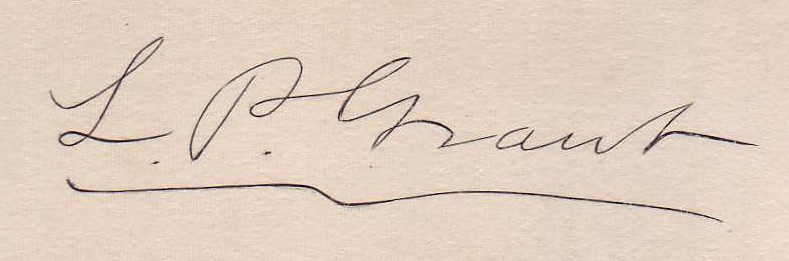 L. P. Grant